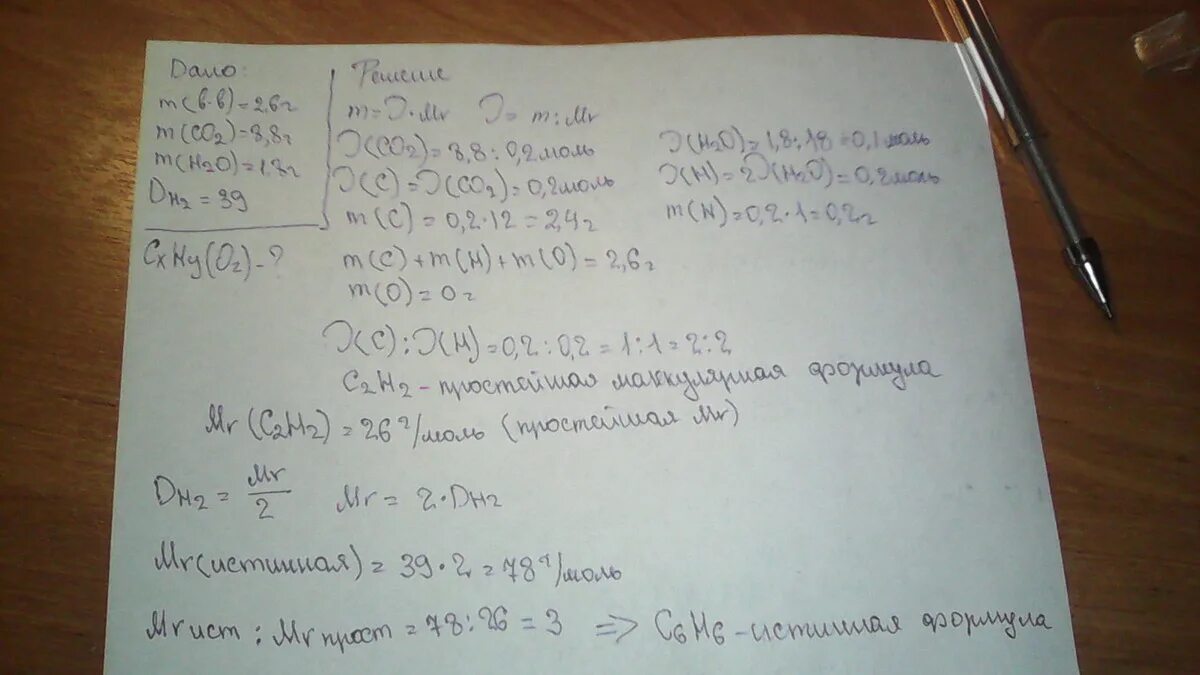 Дано:
m(в-в)=2,6г
m(CO2)=8,8г
m(H2O)=1,8г
DH2 = 39
CxHy(Oz) - ?
Решение
m=ν·Mr ν= m:Mr
ν(CO2)=8,8:0,2моль
ν(C)=ν(CO2)=0,2моль
m(C)=0,2·12=2,4г
ν(H2O)=1,8:18=0,1моль
ν(H)=2ν(H2O)=0,2моль
m(H)=0,2·1=0,2г
m(C)+m(H)+m(O)=2,6г
m(O)=0г
ν(C):ν(H)=0,2:0,2=1:1=2:2
C2H2 - простейшая формула
Mr(C2H2)=26 г/моль (простейшая Mr)
DH2 = Mr/2 Mr = 2·DH2
Mr(истинная)=39·2=78 г/моль
Mr ист : Mr прост = 78:26 = 3 => C6H6 - истинная формула